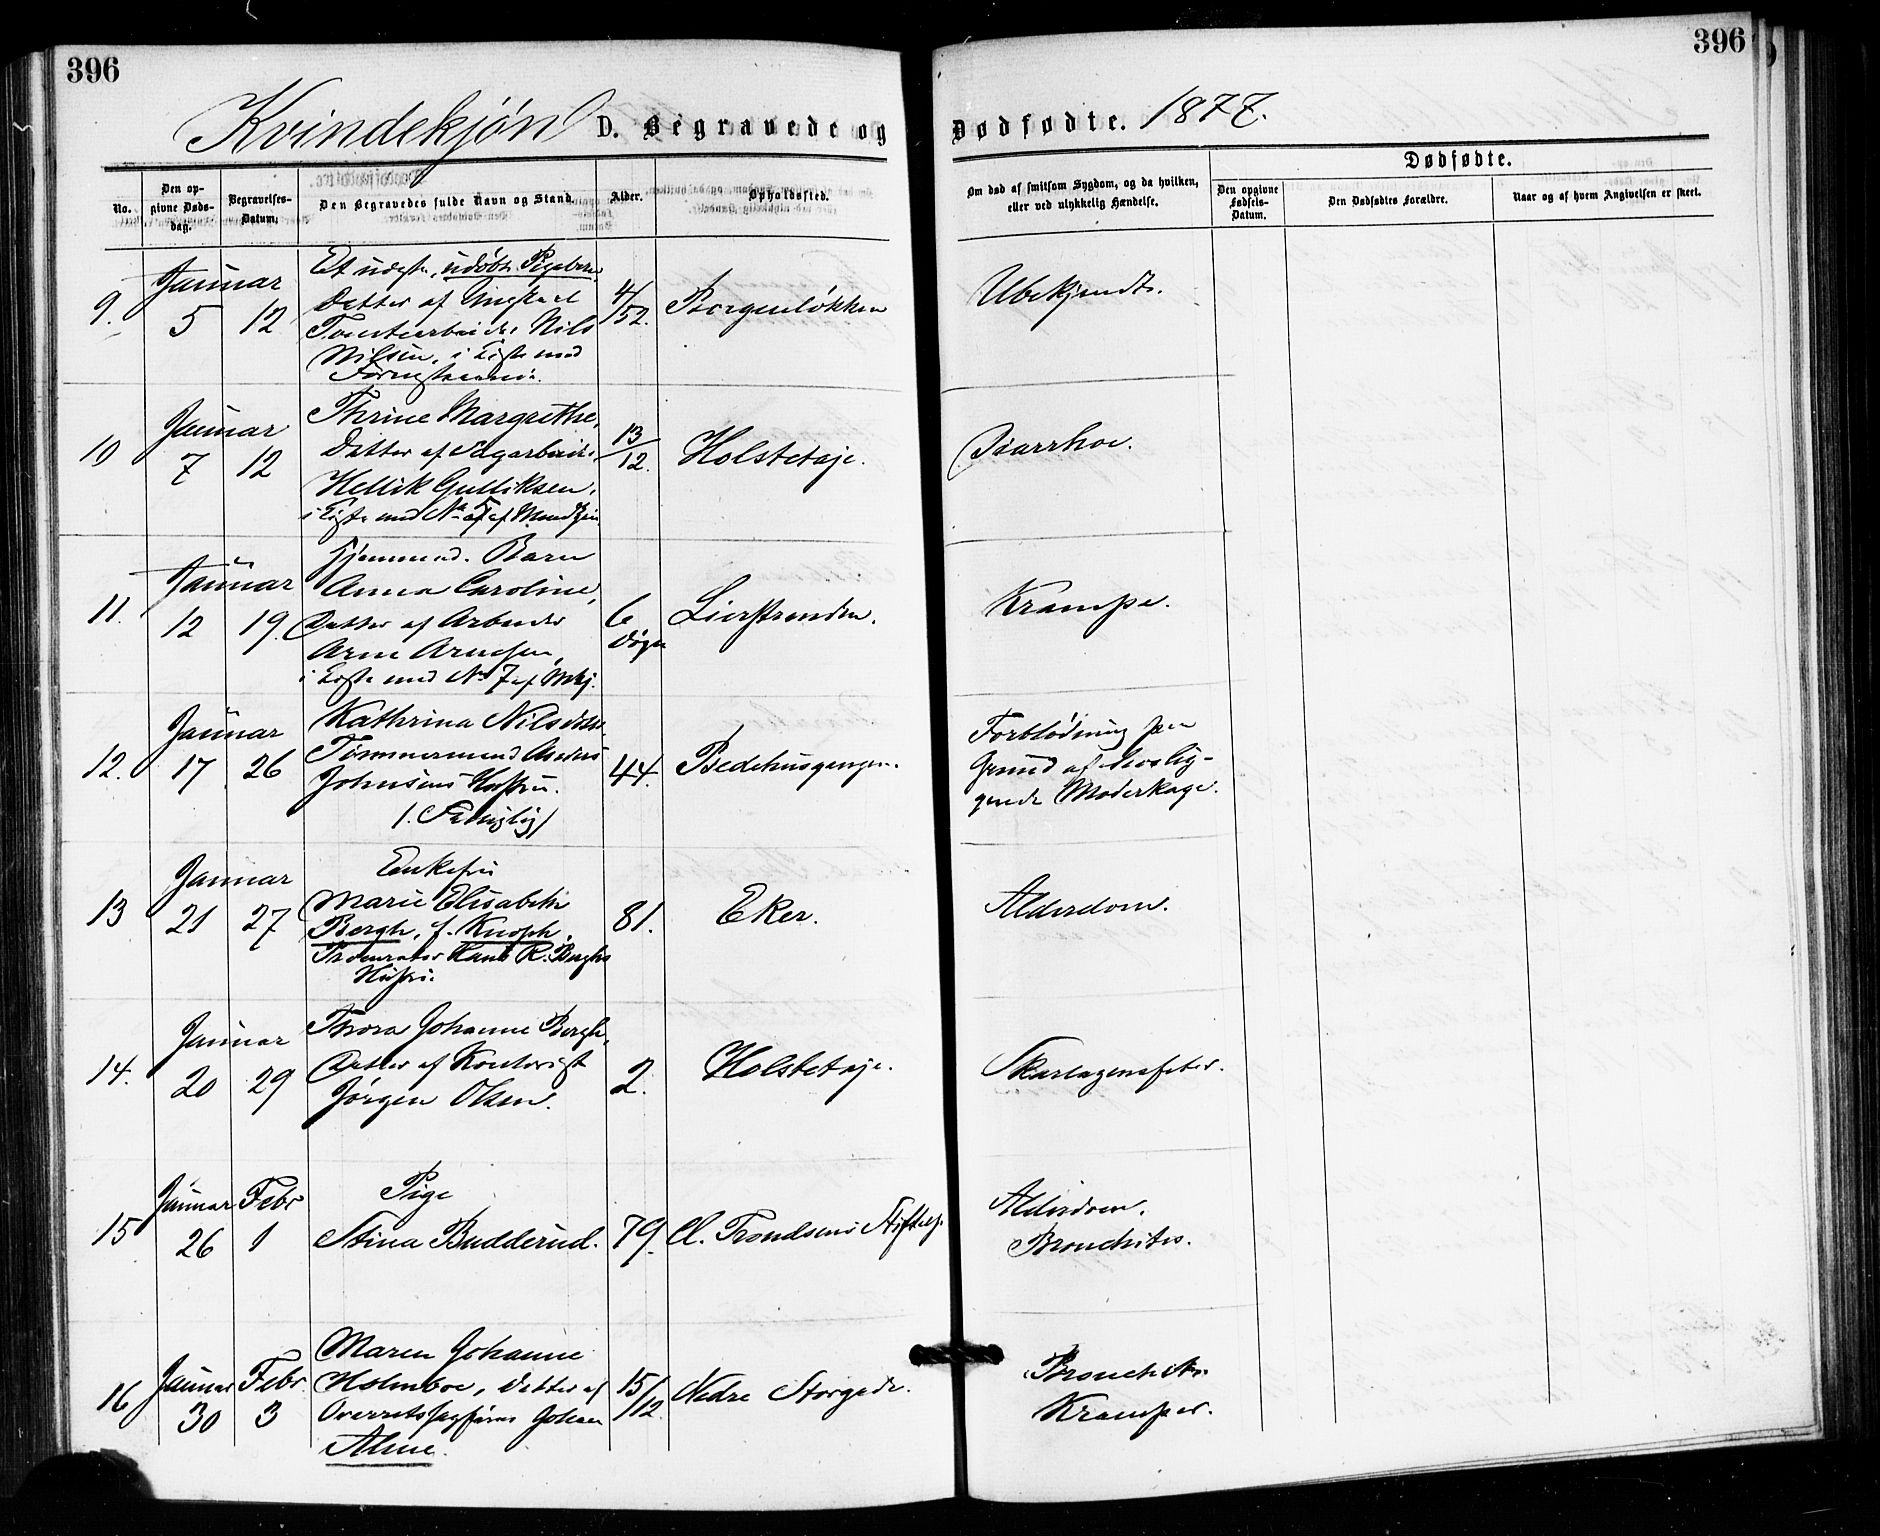 396
396
Kvindekjøn D. Begravede og Dødfødte. 1877.
No.
Den opgivne Dødsdag.
Begravelses-Datum.
Den Begravedes fulde Navn og Stand.
Alder.
Opholdssted.
Om død af smitsom Sygdom, og da hvilken, eller ved ulykkelig Hændelse.
Dødfødte.
Den opgivne Fødsels-Datum.
Den Dødfødtes Forældre.
Naar og af hvem Angivelsen er skeet.
9.
Januar
5 12
Et uægte, udøbt Pigebarn
Datter af Ungkarl
Tomtearbeider Nils
Nilsen, i Kiste med
4/52.
Borgenløkken
Ubekjendt.
10
Januar
7 12
Thrine Margrethe,
Datter af Sagarbeider
Hellik Gulliksen.
i Kiste med No 5 af Mandkjøn
13/12.
Holstetøje.
Diarrhoe.
11.
Januar
12 19.
Hjemmed. Barn
Anna Caroline,
Datter af Arbeider
Arne Arnesen,
i Kiste med No 7 af Mkj.
6 Døgn
Lierstranden.
Krampe.
12.
Januar
17 26
Kathrina Nilsdatter
Tømmermand Anders
Johnsens Hustru.
44.
Bedehusgangen.
Forblødning paa
Grund af
Moderkage.
13
Januar
21 27
Enkefru
Marie Elisabeth
Bergh, f. Knoph,
Procurator Hans R. Berghs
Hustru.
81.
Eker.
Alderdom.
14.
Januar
20 29
Thora Johanne Bergh,
Datter af Kontorist
Jørgen Olsen.
2.
Holstetøje.
Skarlagensfeber.
15
Januar Febr
26 1
Pige
Stina Budderud.
79.
Cl. Trondsens Stiftelse.
Alderdom.
Bronchites.
16
Januar Febr.
30 3
Maren Johanne
Holmboe, Datter af
Overretssagfører Johan
Alme.
15/12.
Nedre Storgade.
Bronchites.
Kramper.